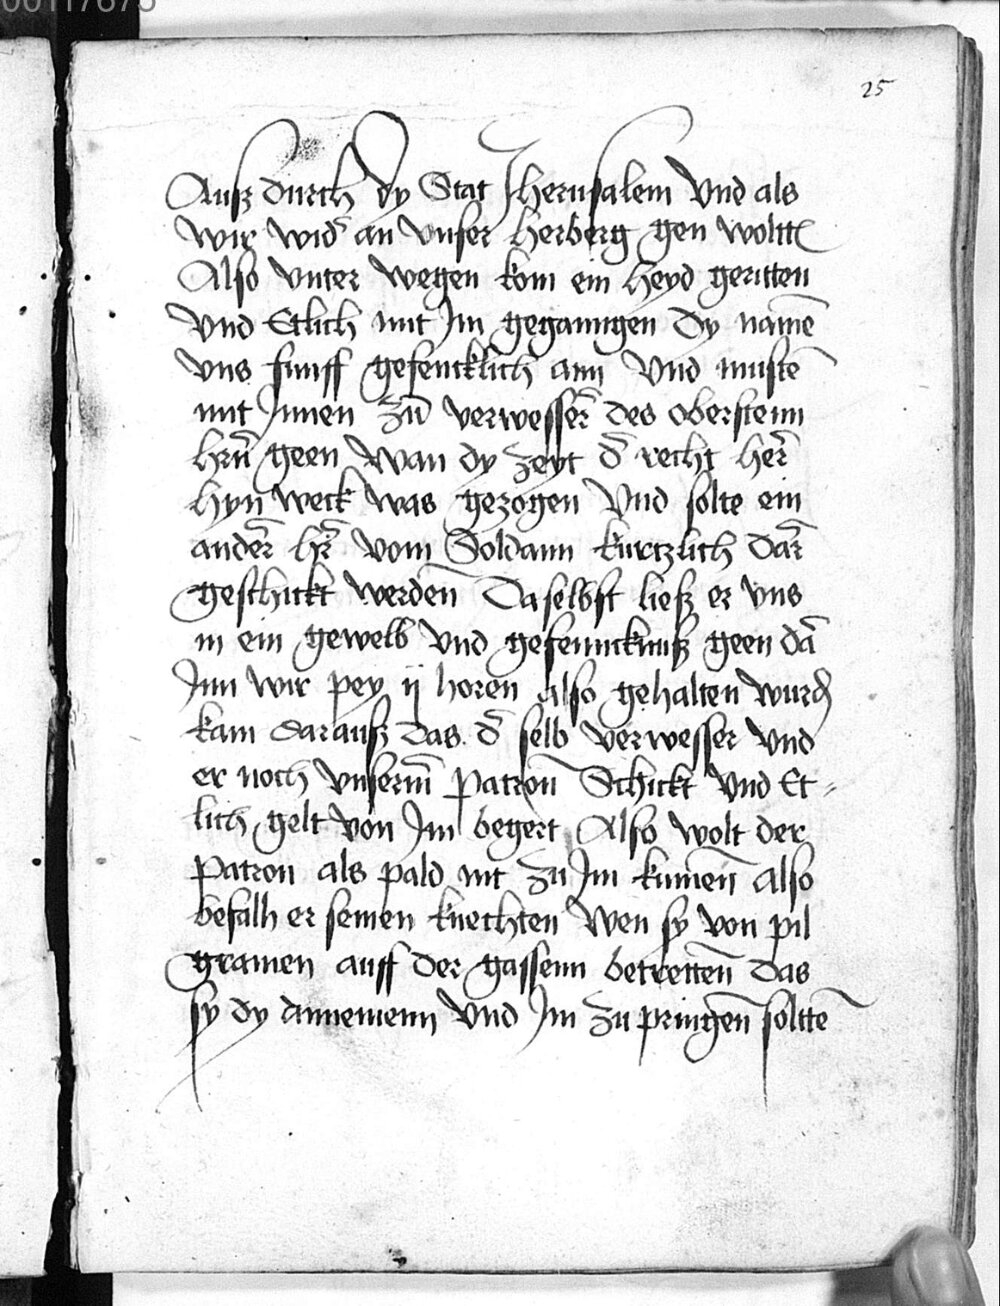 25
Auß durch dy Stat Jherusalem Vnd als
wir wid͛ an vnser herberg gen woltt̄
Also vnter wegen kom ein heyd geritten
Vnd Etlich mit Jm geganngen dy namē
vns funff gefencklich ann Vnd mustē
mit Jnnen zū verwesser̄ des oberstenn
hrn̄ geen Wan dy zeyt d͛ recht her̄
hyn weck was gezogen Vnd solte ein
ander̄ hr̄ vom Soldann kurtzlich dar̄
geschickt werden̄ Daselbst ließ er vns
in ein gewelb Vnd gefenncknuß geen dā
Jnn wir pey ij horen also gehalten wurd̄
kam darauß das d͛ selb verwesser vnd
er noch vnserm̄ patron̄ Schickt Vnd Et-
lich gelt von Jm begert Also wolt der
Patron als pald nit zu Jm kumen̄ also
befalh er seinen knechten Wen sy von pil
gramen auff der gassenn betretten̄ das
sy dy annemenn Vnd Jm zu pringen̄ solttē